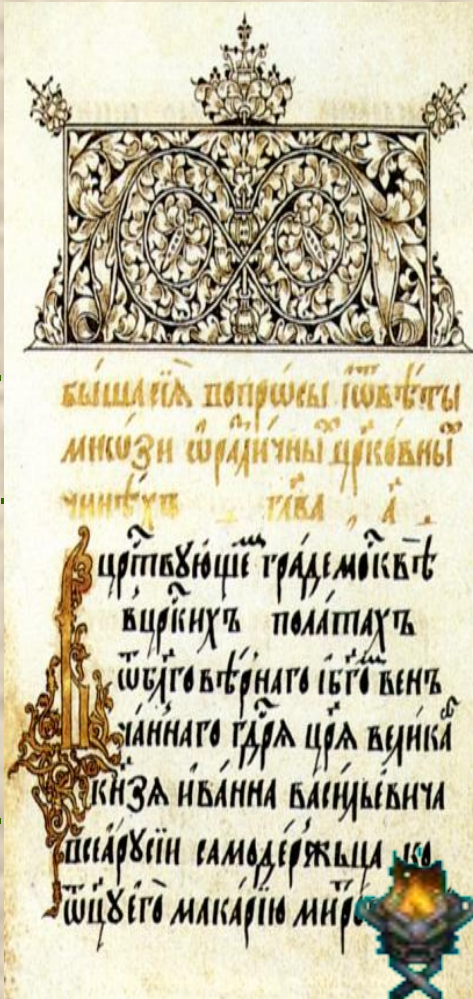 бы́ша сїѧ̀ вопро́сы і ѿвѣ́ты
мно́ѕи ѡ҆ разли́чны црко́вны
чинѣ́хъ гл҃ва а҃
црⷭтвꙋющеⷨ гра́де москвѣ̀
в црⷭкихъ пола́тахъ
ѿ бл҃говѣ́рнаго і бг҃оⷨ вен
ча́ннаго гдⷭрѧ цр҃ѧ вели́каⷢ
кнѧ́зѧ ива́нна васи́льевича
всеѧ̀ рꙋсїи самоде́ржьца ко
ѻтц҃ꙋ его̀ мака́рїю